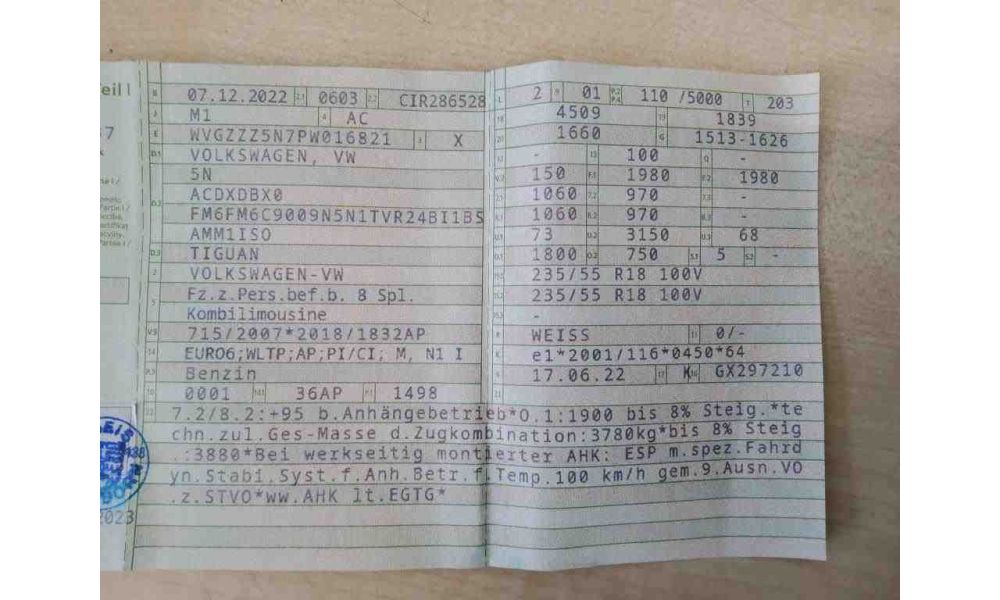 eil I
B 07.12.2022 2.1 0603 2.2 CIR286528
J M1 4 AC
E WVGZZZ5N7PW016821 3 X
D.1 VOLKSWAGEN, VW
5N
D.2 ACDXDBX0
FM6FM6C9009N5N1TVR24BI1BS
AMM1ISO
D.3 TIGUAN
2 VOLKSWAGEN-VW
5 Fz.z.Pers.bef.b. 8 Spl.
Kombilimousine
V.9 715/2007*2018/1832AP
14 EURO6;WLTP;AP;PI/CI; M, N1 I
P.3 Benzin
10 0001 14.1 36AP P.1 1498
L 2 9 01 P.2 P.4 110 /5000 T 203
18 4509 19 1839
20 1660 G 1513-1626
12 - 13 100 Q -
V.7 150 F.1 1980 F.2 1980
7.1 1060 7.2 970 7.3 -
8.1 1060 8.2 970 8.3 -
U.1 73 U.2 3150 U.3 68
O.1 1800 O.2 750 S.1 5 S.2 -
15.1 235/55 R18 100V
15.2 235/55 R18 100V
15.3 -
R WEISS 11 0/-
K e1*2001/116*0450*64
6 17.06.22 17 K 16 GX297210
21
22 7.2/8.2:+95 b.Anhängebetrieb*O.1:1900 bis 8% Steig.*te
chn.zul.Ges-Masse d.Zugkombination:3780kg*bis 8% Steig
.:3880*Bei werkseitig montierter AHK: ESP m.spez.Fahrd
yn.Stabi.Syst.f.Anh.Betr.f.Temp.100 km/h gem.9.Ausn.VO
.z.STVO*ww.AHK lt.EGTG*
2023